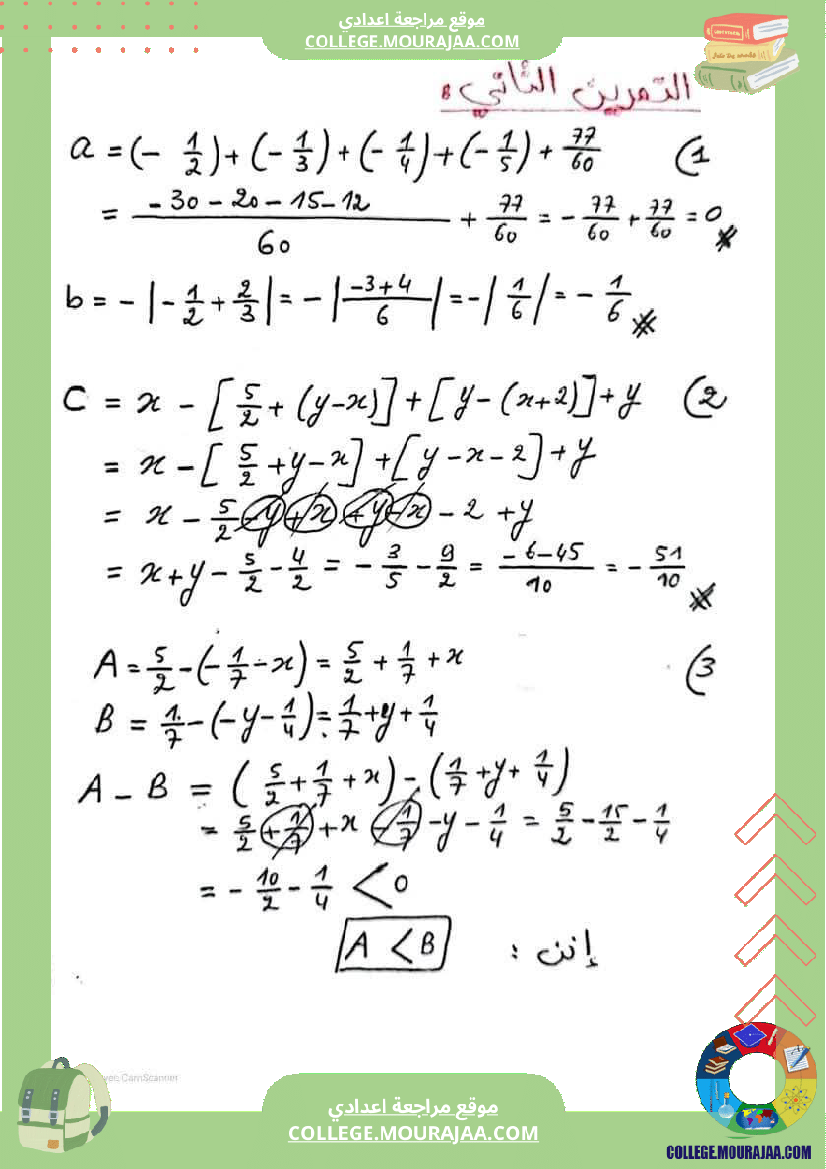 موقع مراجعة اعدادي
COLLEGE.MOURAJAA.COM
التمرين الثاني :
1) a = (- 1/2) + (- 1/3) + (- 1/4) + (- 1/5) + 77/60
= (-30 - 20 - 15 - 12)/60 + 77/60 = - 77/60 + 77/60 = 0
b = - |- 1/2 + 2/3| = - |(-3+4)/6| = - |1/6| = - 1/6
2) C = x - [5/2 + (y-x)] + [y - (x+2)] + y
= x - [5/2 + y - x] + [y - x - 2] + y
= x - 5/2 - y + x + y - x - 2 + y
= x + y - 5/2 - 4/2 = - 3/5 - 9/2 = (-6-45)/10 = - 51/10
3) A = 5/2 - (- 1/7 - x) = 5/2 + 1/7 + x
B = 1/7 - (-y - 1/4) = 1/7 + y + 1/4
A - B = (5/2 + 1/7 + x) - (1/7 + y + 1/4)
= 5/2 + 1/7 + x - 1/7 - y - 1/4 = 5/2 - 15/2 - 1/4
= - 10/2 - 1/4 < 0
إذن : A < B
CamScanner
موقع مراجعة اعدادي
COLLEGE.MOURAJAA.COM
COLLEGE.MOURAJAA.COM